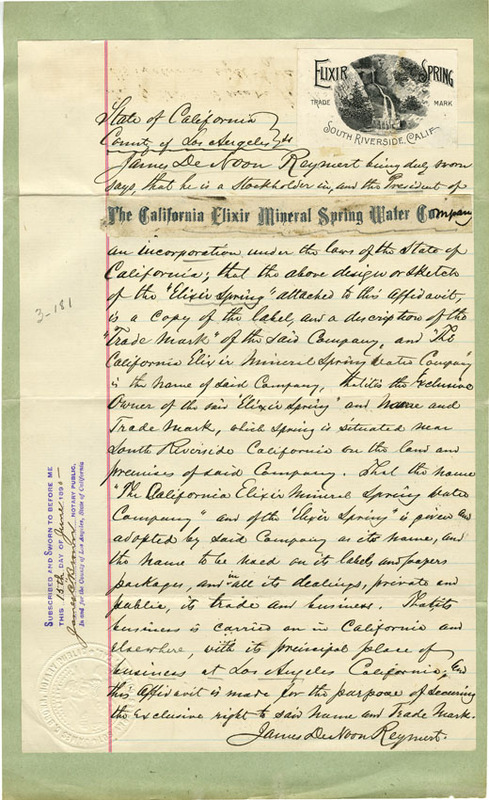 ELIXIR SPRING
TRADE MARK
SOUTH RIVERSIDE, CALIF.
State of California
County of Los Angeles } ss
James De Noon Reymert being duly sworn
says, that he is a stockholder in, and the President of
The California Elixir Mineral Spring Water Company
an incorporation under the laws of the State of
California; that the above design or sketch
of the "Elixir Spring" attached to this Affidavit,
is a copy of the label, and a discription of the
"Trade Mark" of the said Company, and "The
California Elixir Mineral Spring Water Company"
is the name of said Company, that it is the Exclusive
Owner of the said "Elixir Spring" and Name and
Trade Mark, which Spring is situated near
South Riverside California on the land and
premises of said Company. That the name
"The California Elixir Mineral Spring Water
Company" and of the "Elixir Spring" is given and
adopted by said Company as its name, and
the name to be used on its labels and papers
packages, and in all its dealings, private and
public, its trade and business. That its
business is carried on in California and
elsewhere, with its principal place of
business at Los Angeles California; and
this Affidavit is made for the purpose of securing
the Exclusive right to said Name and Trade Mark.
James De Noon Reymert.
3-181
SUBSCRIBED AND SWORN TO BEFORE ME
THIS 15th DAY OF June 1890
NOTARY PUBLIC,
In and for the County of Los Angeles, State of California